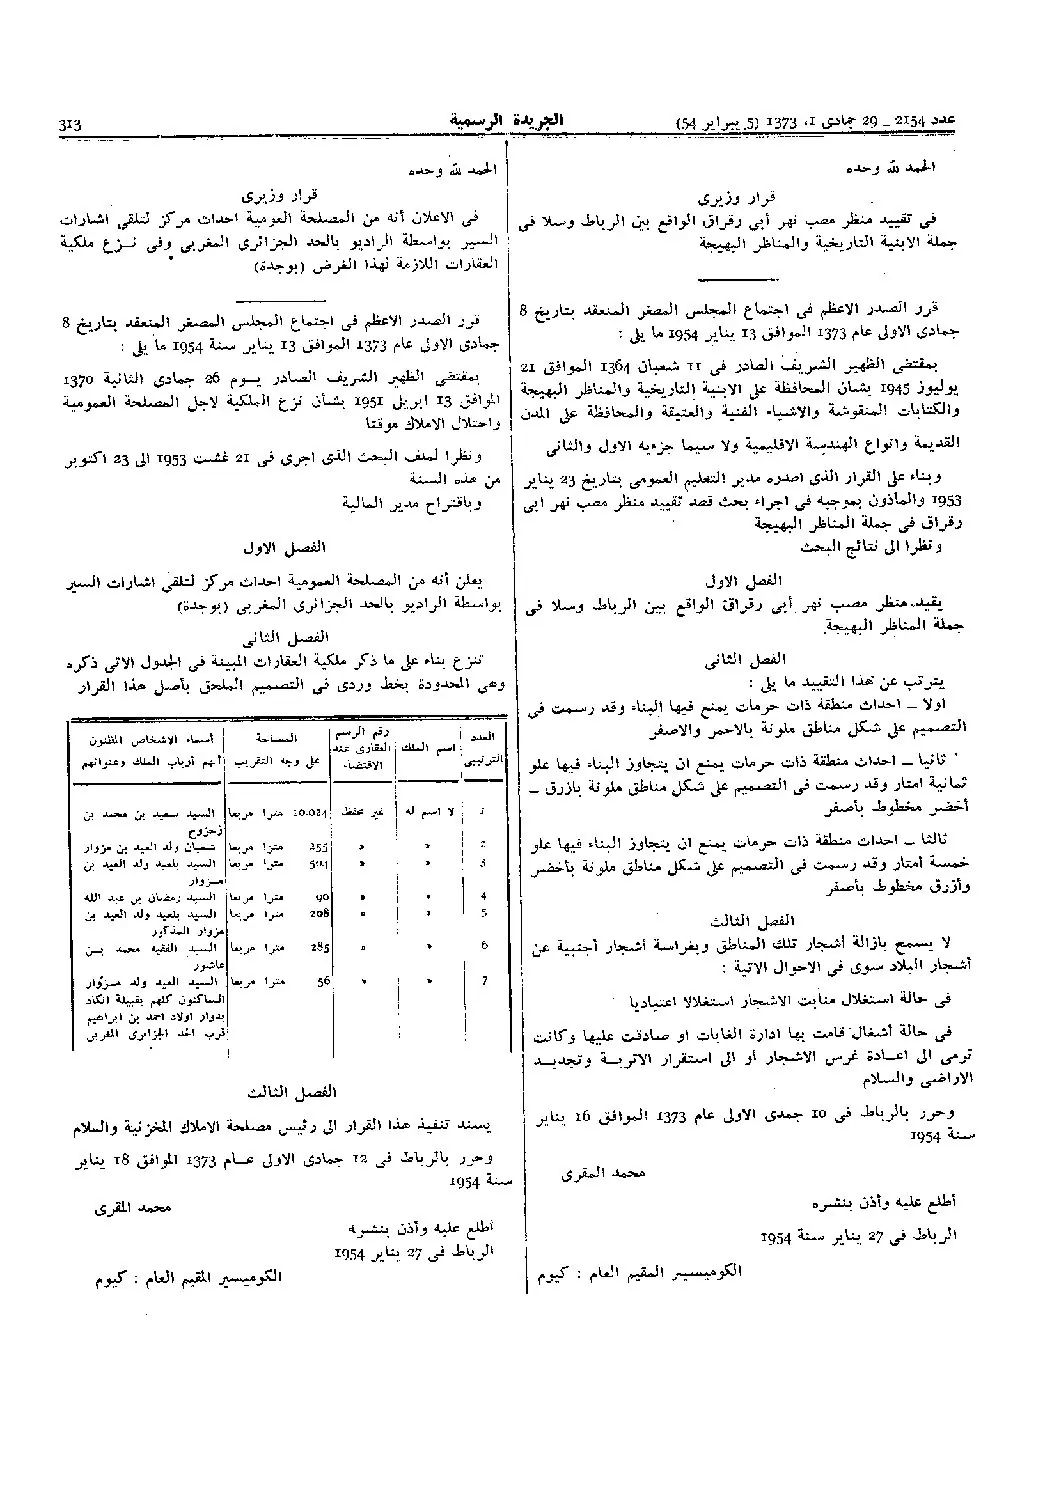 عدد 2154 ـ 29 جمادى 1، 1373 (5 يبراير 54)
الجريدة الرسمية
313
الحمد لله وحده
قرار وزيرى
فى تقييد منظر مصب نهر أبي رقراق الواقع بين الرباط وسلا فى
جملة الابنية التاريخية والمناظر البهيجة
قرر الصدر الاعظم فى اجتماع المجلس المصغر المنعقد بتاريخ 8
جمادى الاولى عام 1373 الموافق 13 يناير 1954 ما يلى :
بمقتضى الظهير الشريف الصادر فى 11 شعبان 1364 الموافق 21
يوليوز 1945 بشان المحافظة على الابنية التاريخية والمناظر البهيجة
والكتابات المنقوشة والاشياء الفنية والعتيقة والمحافظة على المدن
القديمة وانواع الهندسة الاقليمية ولا سيما جزءيه الاول والثانى
وبناء على القرار الذى اصدره مدير التعليم العمومي بتاريخ 23 يناير
1953 والماذون بموجبه فى اجراء بحث قصد تقييد منظر مصب نهر ابى
رقراق فى جملة المناظر البهيجة
ونظرا الى نتائج البحث
الفصل الاول
يقيد منظر مصب نهر أبى رقراق الواقع بين الرباط وسلا فى
جملة المناظر البهيجة
الفصل الثانى
يترتب عن هذا التقييد ما يلى :
اولا ـ احداث منطقة ذات حرمات يمنع فيها البناء وقد رسمت فى
التصميم على شكل مناطق ملونة بالاحمر والاصفر
ثانيا ـ احداث منطقة ذات حرمات يمنع ان يتجاوز البناء فيها علو
ثمانية امتار وقد رسمت فى التصميم على شكل مناطق ملونة بازرق ـ
أخضر مخطوط بأصفر
ثالثا ـ احداث منطقة ذات حرمات يمنع ان يتجاوز البناء فيها علو
خمسة امتار وقد رسمت فى التصميم على شكل مناطق ملونة بأخضر
وأزرق مخطوط بأصفر
الفصل الثالث
لا يسمح بازالة أشجار تلك المناطق وبغراسة أشجار أجنبية عن
أشجار البلاد سوى فى الاحوال الاتية :
فى حالة استغلال منابت الاشجار استغلالا اعتياديا
فى حالة أشغال قامت بها ادارة الغابات او صادقت عليها وكانت
ترمى الى اعـادة غرس الاشجار أو الى استقرار الاتربـة وتجديـد
الاراضى والسلام
وحرر بالرباط فى 10 جمدى الاولى عام 1373 الموافق 16 يناير
سنة 1954
محمد المقرى
أطلع عليه وأذن بنشره
الرباط فى 27 يناير سنة 1954
الكوميسير المقيم العام : كيوم
الحمد لله وحده
قرار وزيرى
فى الاعلان أنه من المصلحة العمومية احداث مركز لتلقى اشارات
السير بواسطة الراديو بالحد الجزائرى المغربى وفى نـزع ملكية
العقارات اللازمة لهذا الغرض (بوجدة)
قرر الصدر الاعظم فى اجتماع المجلس المصغر المنعقد بتاريخ 8
جمادى الاولى عام 1373 الموافق 13 يناير سنة 1954 ما يلى :
بمقتضى الظهير الشريف الصادر يـوم 26 جمادى الثانية 1370
الموافق 13 ابريل 1951 بشان نزع الملكية لاجل المصلحة العمومية
واحتلال الاملاك موقتا
ونظرا لملف البحث الذى اجرى فى 21 غشت 1953 الى 23 اكتوبر
من هذه السنة
وباقتراح مدير المالية
الفصل الاول
يعلن أنه من المصلحة العمومية احداث مركز لتلقي اشارات السير
بواسطة الراديو بالحد الجزائرى المغربى (بوجدة)
الفصل الثانى
تنزع بناء على ما ذكر ملكية العقارات المبينة فى الجدول الاتى ذكره
وهى المحدودة بخط وردى فى التصميم الملحق بأصل هذا القرار
العدد الترتيبى | اسم الملك | رقم الرسم العقارى عند الاقتضاء | المساحة على وجه التقريب | أسماء الاشخاص المظنون أنهم أرباب الملك وعنوانهم
1 | لا اسم له | غير محفظ | 10.024 مترا مربعا | السيد سعيد بن محمد بن زحزوح
2 | » | » | 255 مترا مربعا | شعبان ولد العيد بن مزوار
3 | » | » | 501 مترا مربعا | السيد بلعيد ولد العيد بن مـزوار
4 | » | » | 90 مترا مربعا | السيد رمضان بن عبد الله
5 | » | » | 208 مترا مربعا | السيد بلعيد ولد العيد بن مزوار المذكور
6 | » | » | 285 مترا مربعا | السيد الفقيه محمد بـن عاشور
7 | » | » | 56 مترا مربعا | السيد العيد ولد مـزوار
الساكنون كلهم بقبيلة انكاد
بدوار اولاد احمد بن ابراهيم
قرب الحد الجزائرى المغربى
الفصل الثالث
يسند تنفيذ هذا القرار الى رئيس مصلحة الاملاك المخزنية والسلام
وحرر بالرباط فى 12 جمادى الاولى عـام 1373 الموافق 18 يناير
سنة 1954
محمد المقرى
أطلع عليه وأذن بنشره
الرباط فى 27 يناير 1954
الكوميسير المقيم العام : كيوم